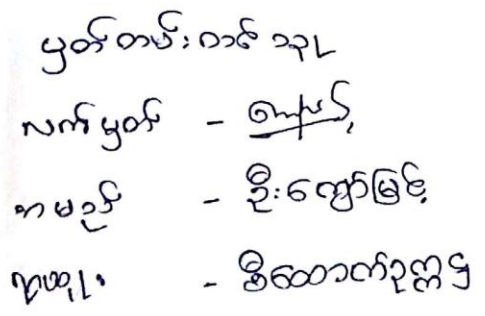 မှတ်တမ်းတင်သူ
လက်မှတ် -
အမည် - ဦးကျော်မြင့်
ရာထူး - စီထောက်ဥက္ကဋ္ဌ